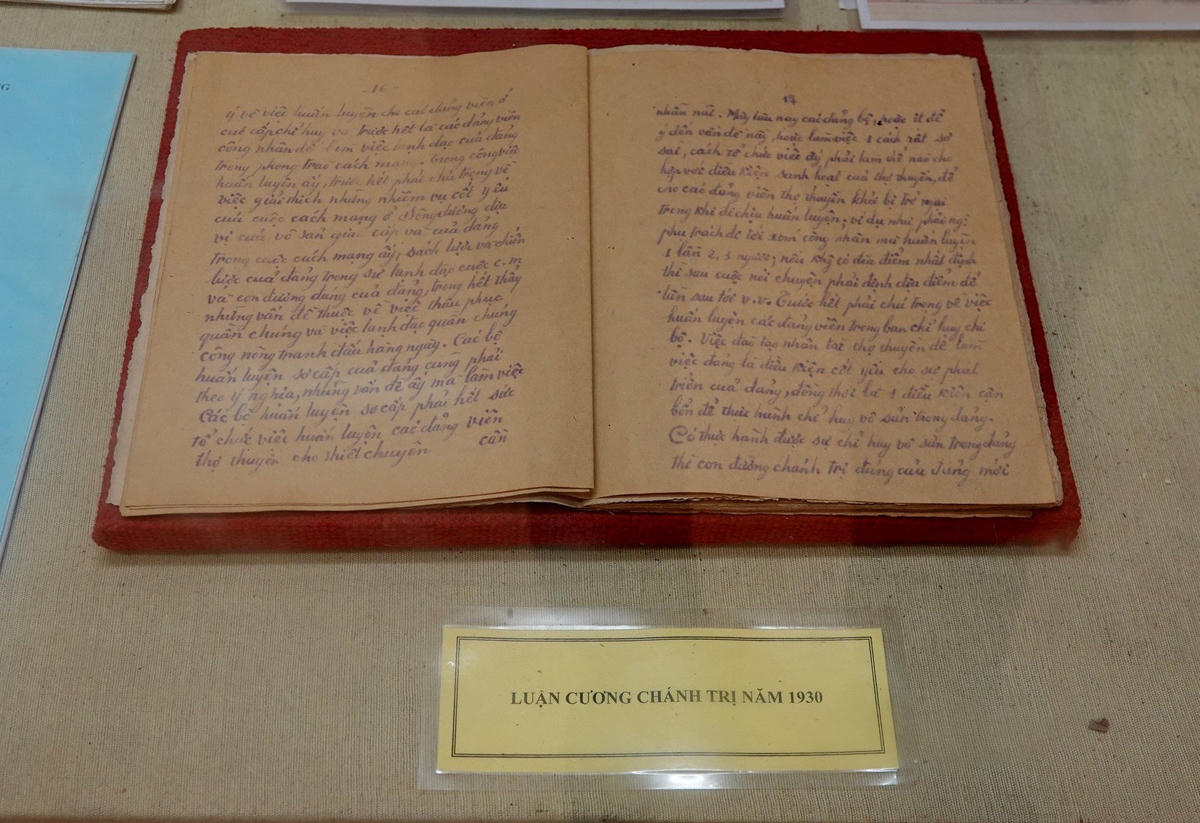 G
-16-
ý về việc huấn luyện cho các đảng viên ở
các cấp chỉ huy và trước hết là các đảng viên
công nhân để làm việc lanh đạo của đảng
trong phong trào cách mạng. trong công việc
huấn luyện ấy, trước hết phải chú trọng về
việc giải thích những nhiệm vụ cốt yếu
của cuộc cách mạng ở Đông dương địa
vị của vô sản giai cấp và của đảng
trong cuộc cách mạng ấy, sách lược và chiến
lược của đảng trong sự lanh đạo cuộc c.m
và con đường đúng của đảng, trong hết thảy
những vấn đề thuộc về việc thâu phục
quần chúng và việc lanh đạo quần chúng
công nông tranh đấu hàng ngày. Các bộ
huấn luyện sơ cấp của đảng cũng phải
theo ý nghĩa, những vấn đề ấy mà làm việc
Các bộ huấn luyện sơ cấp phải hết sức
tổ chức việc huấn luyện các đảng viên
thợ thuyền cho thiết chuyên
cần
17
nhẫn nại. Mấy lâu nay các đảng bộ, hoặc ít để
ý đến vấn đề này, hoặc làm việc 1 cách rất sơ
sài, cách tổ chức việc ấy phải làm thế nào cho
hợp với điều kiện sanh hoạt của thợ thuyền, để
cho các đảng viên thợ thuyền khỏi bị trở ngại
trong khi đi chịu huấn luyện; ví dụ như phái người
phụ trách đi tới xóm công nhân mà huấn luyện
1 lần 2, 3 người; nếu không có địa điểm nhất định
thì sau cuộc nói chuyện phải định địa điểm để
lần sau tới v.v. Trước hết phải chú trọng về việc
huấn luyện các đảng viên trong ban chỉ huy chi
bộ. Việc đào tạo nhân tài thợ thuyền để làm
việc đảng là điều kiện cốt yếu cho sự phát
triển của đảng, đồng thời là 1 điều kiện căn
bổn để thực hành chỉ huy vô sản trong đảng.
Có thực hành được sự chỉ huy vô sản trong đảng
thì con đường chánh trị đúng của đảng mới
LUẬN CƯƠNG CHÁNH TRỊ NĂM 1930